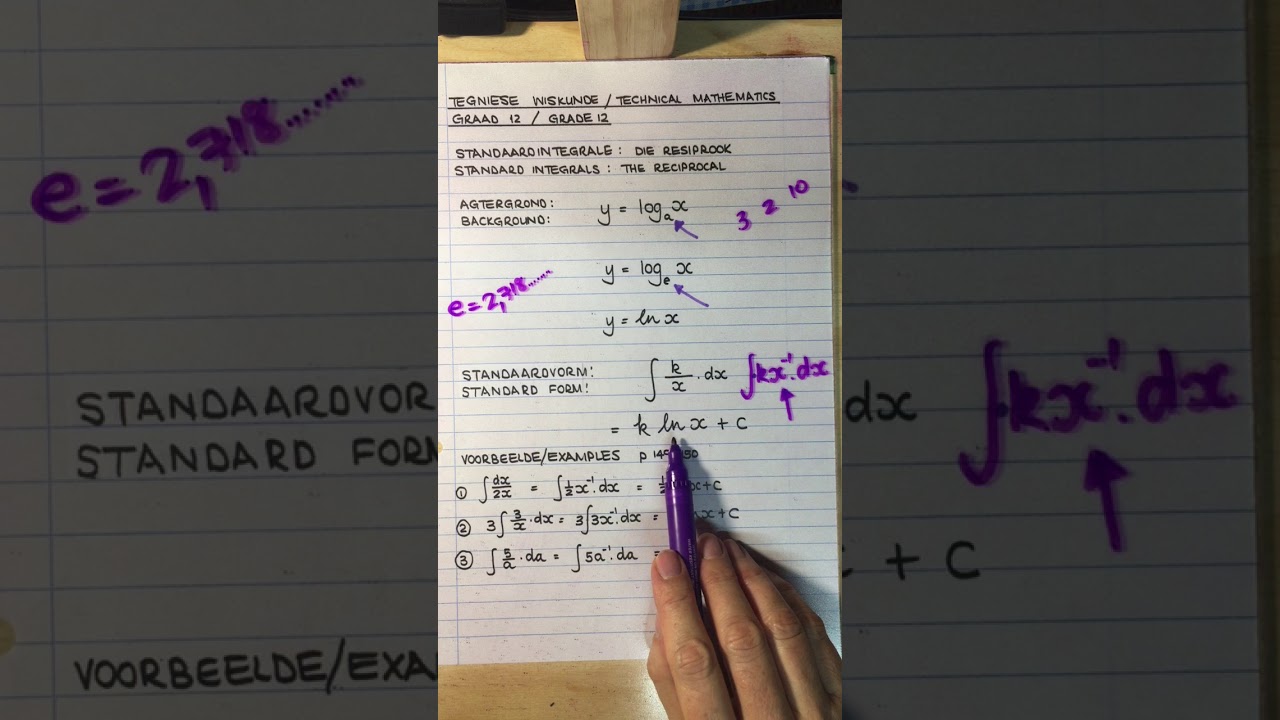 TEGNIESE WISKUNDE / TECHNICAL MATHEMATICS
GRAAD 12 / GRADE 12
STANDAARDINTEGRALE : DIE RESIPROOK
STANDARD INTEGRALS : THE RECIPROCAL
AGTERGROND:
BACKGROUND:
y = logₐx
3 2 10
y = logₑx
e = 2,718......
y = ln x
STANDAARDVORM:
STANDARD FORM:
∫ k/x . dx
∫kx⁻¹. dx
= k ln x + c
VOORBEELDE/EXAMPLES p
① ∫ dx/2x = ∫ 1/2 x⁻¹. dx = x + c
② 3∫ 3/x . dx = 3∫3x⁻¹. dx = x + c
③ ∫ 5/a . da = ∫5a⁻¹. da =
e = 2,718......
STANDAARDVOR
STANDARD FOR
dx
∫kx⁻¹. dx
+ c
VOORBEELDE/EXA